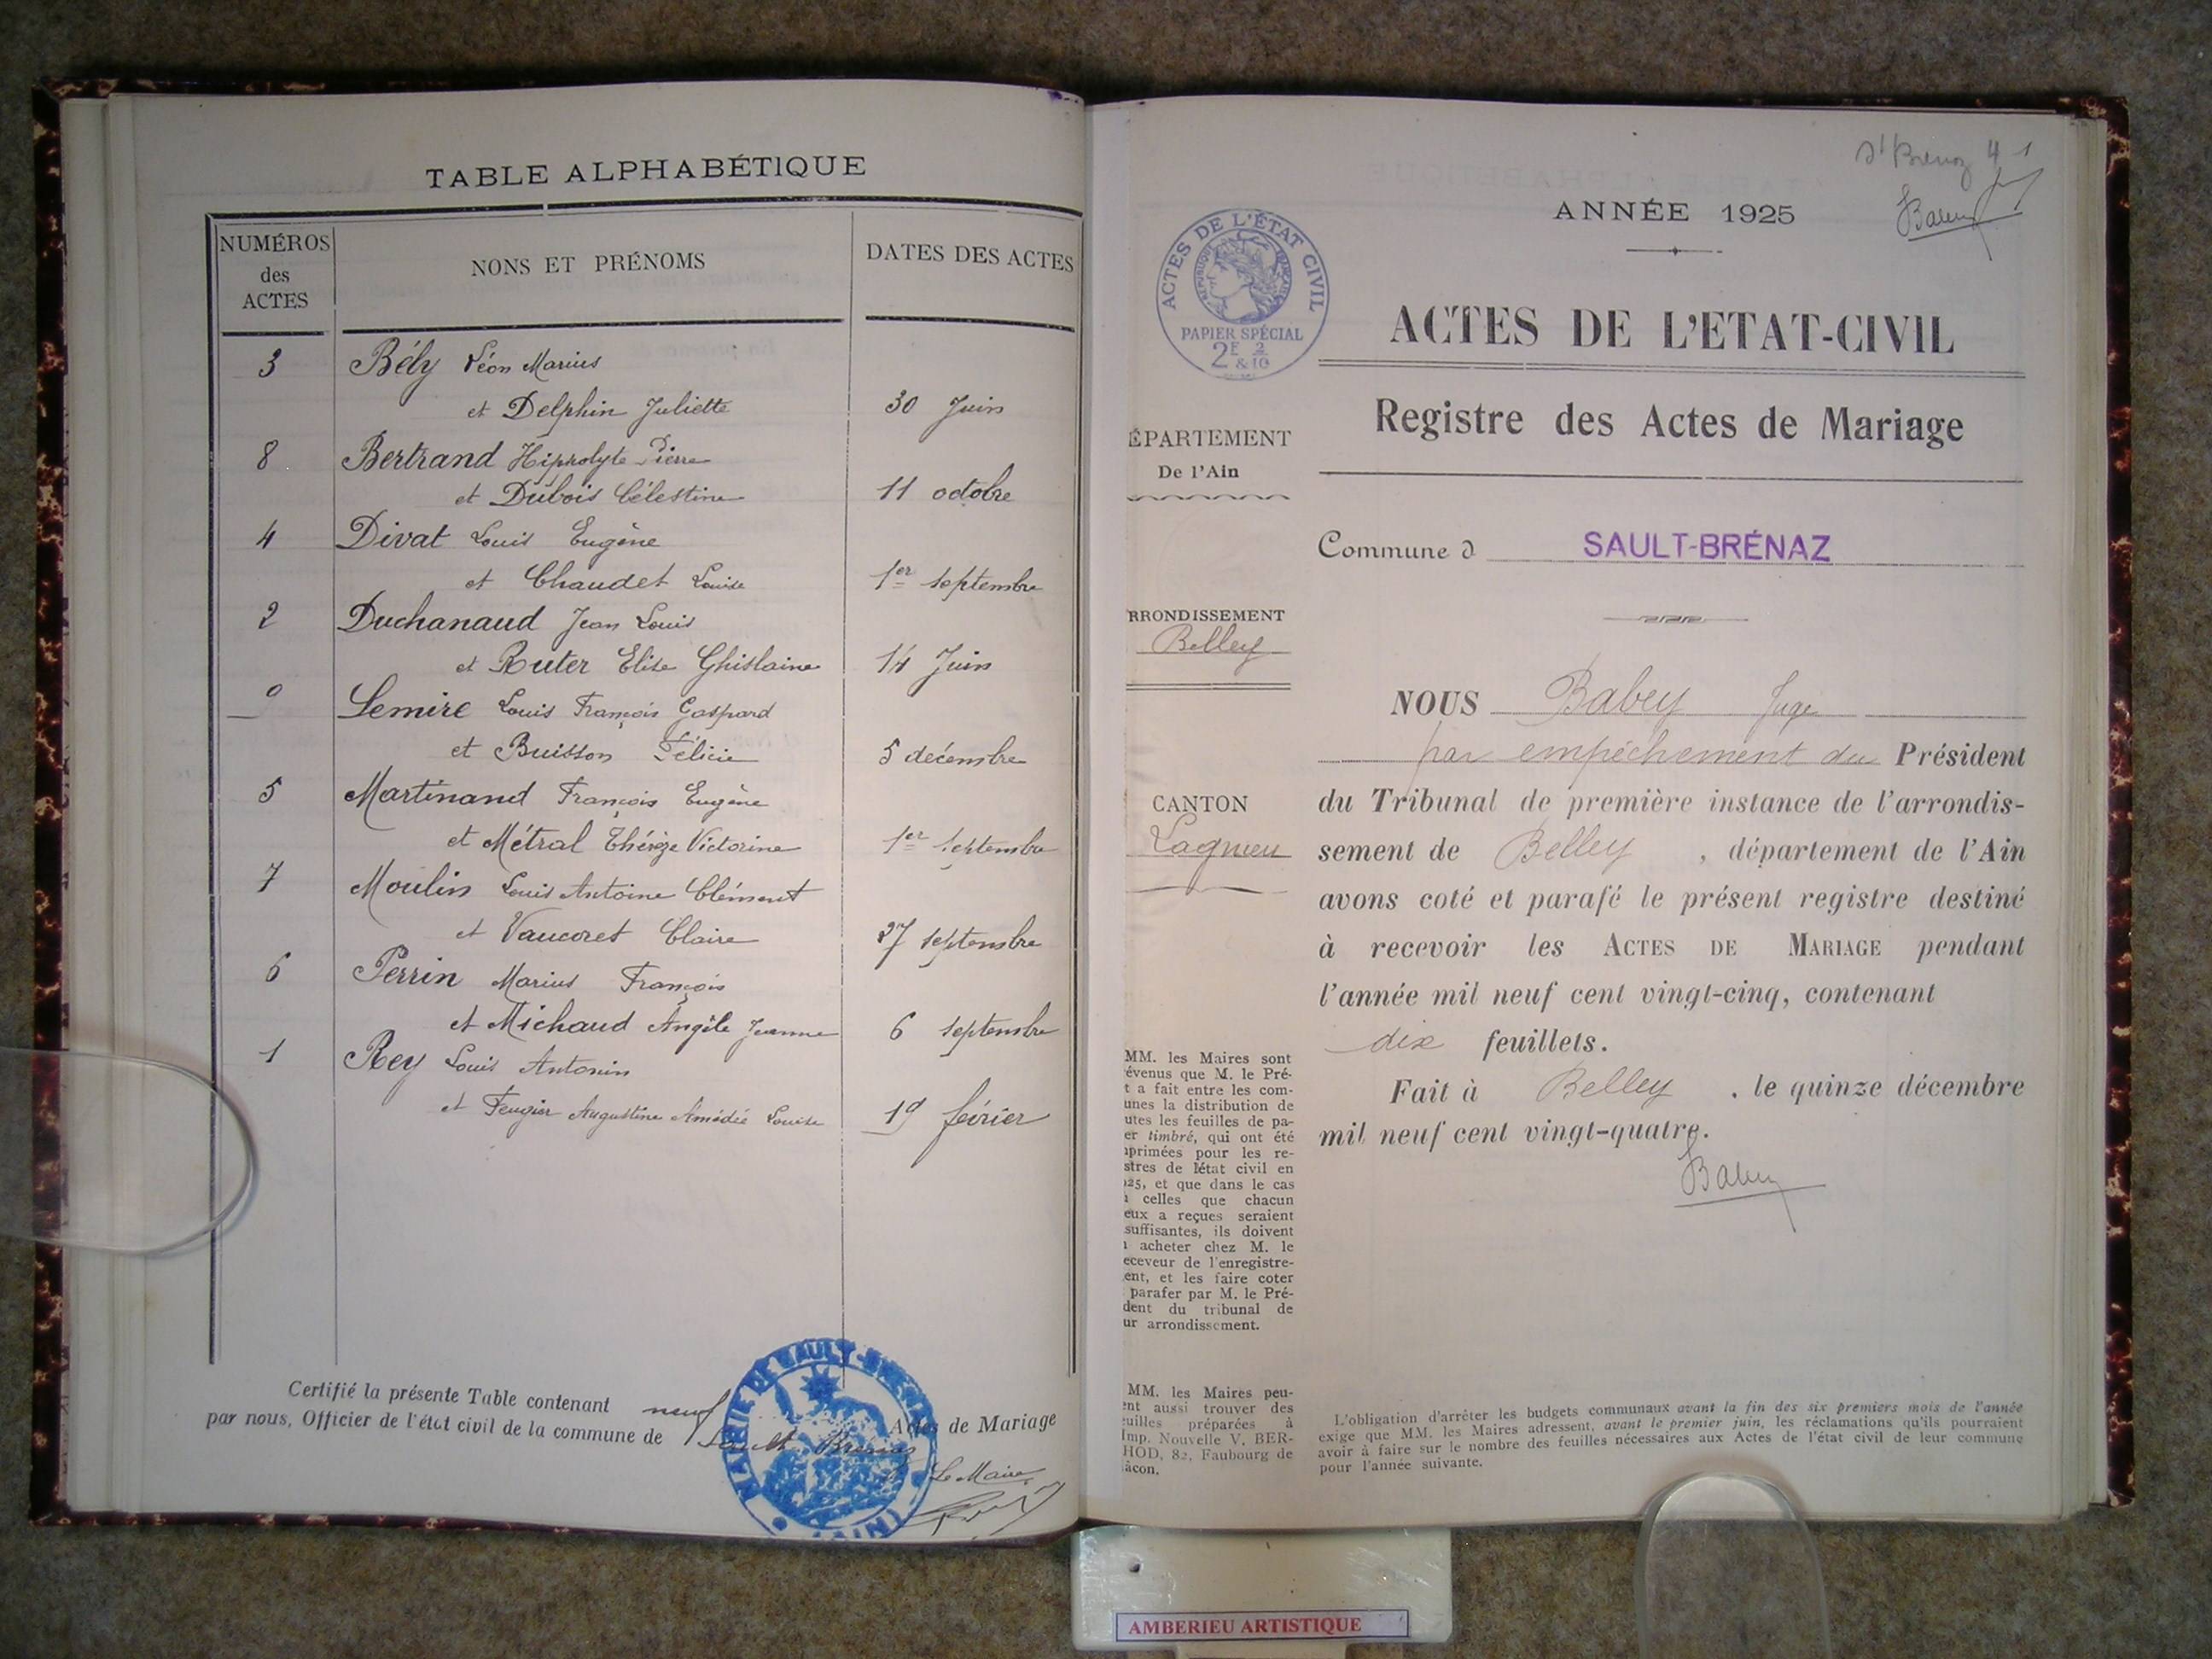 TABLE ALPHABÉTIQUE
NUMÉROS
des
ACTES
NONS ET PRÉNOMS
DATES DES ACTES
3 Bély Léon Marius
et Delphin Juliette 30 Juin
8 Bertrand Hippolyte Pierre
et Dubois Célestine 11 octobre
4 Divat Louis Eugène
et Chaudet Louise 1er septembre
2 Duchanaud Jean Louis
et Ruter Elise Ghislaine 14 Juin
9 Lemire Louis François Gaspard
et Buisson Félicie 5 décembre
5 Martinand François Eugène
et Métral Thérèze Victorine 1er septembre
7 Moulin Louis Antoine Clément
et Vaucoret Claire 27 septembre
6 Perrin Marius François
et Michaud Angèle Jeanne 6 septembre
1 Rey Louis Antonin
et Feugier Augustine Amédée Louise 19 février
Certifié la présente Table contenant neuf Actes de Mariage
par nous, Officier de l'état civil de la commune de Sault-Brénaz
Le Maire
MAIRIE DE SAULT-BRÉNAZ (AIN)
St Brénaz 4 1
Babey
ANNÉE 1925
ACTES DE L'ÉTAT CIVIL
RÉPUBLIQUE FRANÇAISE
PAPIER SPÉCIAL
2F & 2/10
ACTES DE L'ETAT-CIVIL
Registre des Actes de Mariage
ÉPARTEMENT
De l'Ain
Commune d SAULT-BRÉNAZ
RRONDISSEMENT
Belley
CANTON
Lagnieu
NOUS Babey Juge
par empêchement du Président
du Tribunal de première instance de l'arrondis-
sement de Belley, département de l'Ain
avons coté et parafé le présent registre destiné
à recevoir les ACTES DE MARIAGE pendant
l'année mil neuf cent vingt-cinq, contenant
dix feuillets.
Fait à Belley, le quinze décembre
mil neuf cent vingt-quatre.
Babey
MM. les Maires sont
évenus que M. le Pré-
t a fait entre les com-
unes la distribution de
utes les feuilles de pa-
er timbré, qui ont été
primées pour les re-
stres de létat civil en
25, et que dans le cas
celles que chacun
eux a reçues seraient
suffisantes, ils doivent
acheter chez M. le
eceveur de l'enregistre-
ent, et les faire coter
parafer par M. le Pré-
dent du tribunal de
ur arrondissement.
MM. les Maires peu-
ent aussi trouver des
euilles préparées à
Imp. Nouvelle V. BER-
HOD, 82, Faubourg de
âcon.
L'obligation d'arrêter les budgets communaux avant la fin des six premiers mois de l'année
exige que MM. les Maires adressent, avant le premier juin, les réclamations qu'ils pourraient
avoir à faire sur le nombre des feuilles nécessaires aux Actes de l'état civil de leur commune
pour l'année suivante.
AMBERIEU ARTISTIQUE